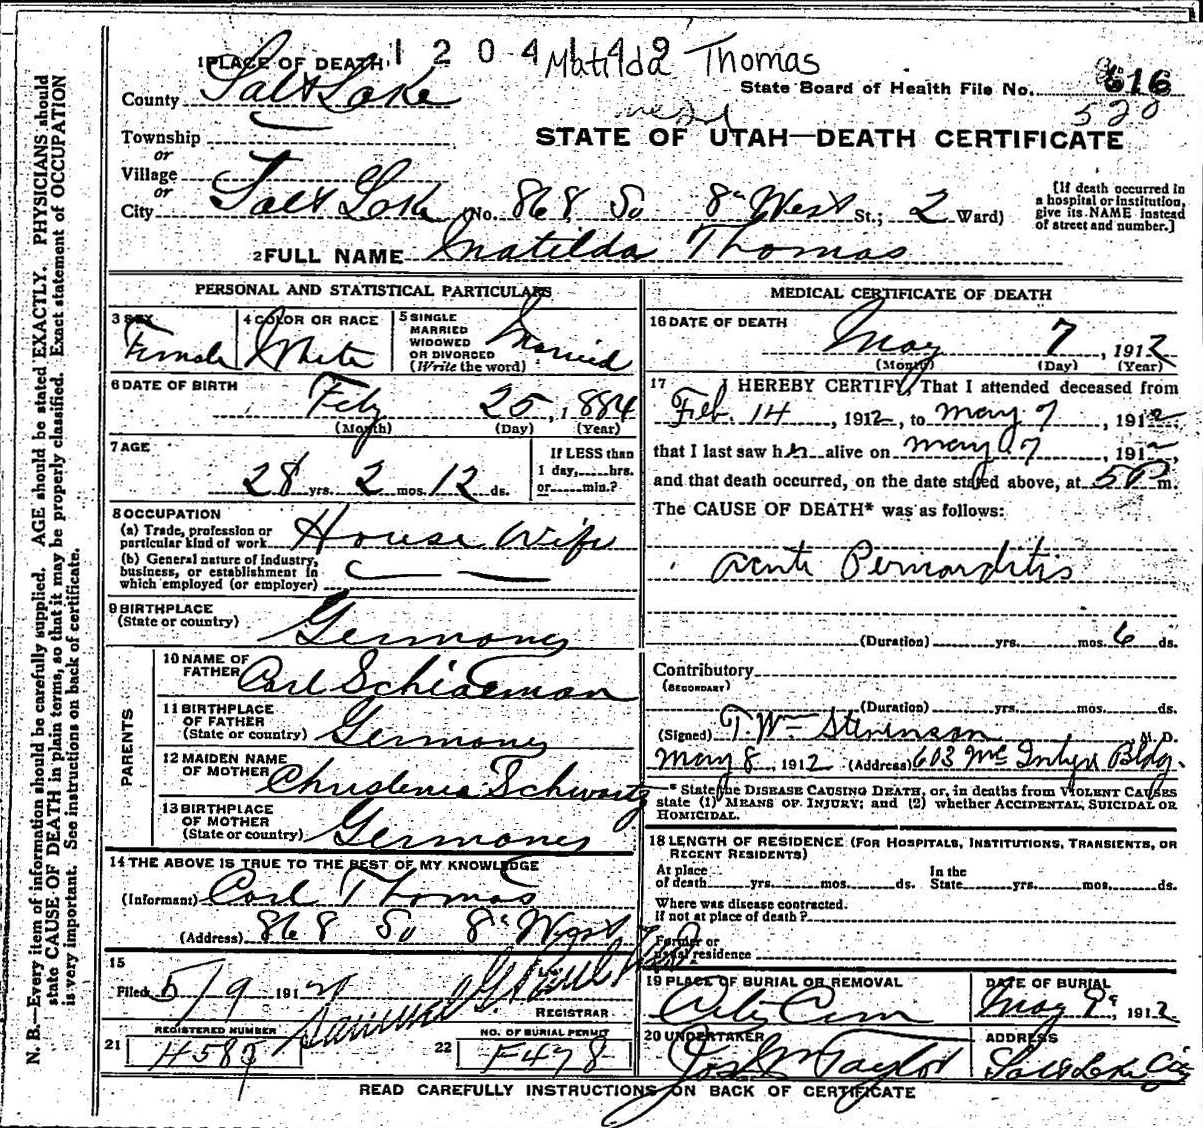 1 2 0 4 1 4 9
Matilda Thomas
State Board of Health File No. 616
520
STATE OF UTAH—DEATH CERTIFICATE
1 PLACE OF DEATH
County Salt Lake
Township
or
Village
or
City Salt Lake (No. 868 So 8" West St.; 2 Ward)
[If death occurred in
a hospital or institution,
give its NAME instead
of street and number.]
2 FULL NAME Matilda Thomas
PERSONAL AND STATISTICAL PARTICULARS
3 SEX
Female
4 COLOR OR RACE
White
5 SINGLE
MARRIED
WIDOWED
OR DIVORCED
(Write the word)
Married
6 DATE OF BIRTH
Feby 25, 1884
(Month) (Day) (Year)
7 AGE
28 yrs. 2 mos. 12 ds.
If LESS than
1 day, hrs.
or min.?
8 OCCUPATION
(a) Trade, profession or
particular kind of work House Wife
(b) General nature of industry,
business, or establishment in
which employed (or employer)
9 BIRTHPLACE
(State or country)
Germany
PARENTS
10 NAME OF
FATHER Carl
11 BIRTHPLACE
OF FATHER
(State or country) Germany
12 MAIDEN NAME
OF MOTHER Christenia Schwartz
13 BIRTHPLACE
OF MOTHER
(State or country) Germany
14 THE ABOVE IS TRUE TO THE BEST OF MY KNOWLEDGE
(Informant) Carl Thomas
(Address) 868 So 8" West
15
Filed 5/9 191
REGISTRAR
REGISTERED NUMBER
21 H589
NO. OF BURIAL PERMIT
22 F478
MEDICAL CERTIFICATE OF DEATH
16 DATE OF DEATH
May 7, 1912
(Month) (Day) (Year)
17 I HEREBY CERTIFY, That I attended deceased from
Feb. 14, 1912, to May 7, 1912,
that I last saw her alive on May 7, 1912,
and that death occurred, on the date stated above, at 5 P m.
The CAUSE OF DEATH* was as follows:
Acute Pericarditis
(Duration) yrs. mos. 6 ds.
Contributory
(SECONDARY)
(Duration) yrs. mos. ds.
(Signed) T. Wm Stevenson M. D.
May 8, 1912 (Address) 603 McIntyre Bldg.
*State the DISEASE CAUSING DEATH, or, in deaths from VIOLENT CAUSES
state (1) MEANS OF INJURY; and (2) whether ACCIDENTAL, SUICIDAL OR
HOMICIDAL.
18 LENGTH OF RESIDENCE (FOR HOSPITALS, INSTITUTIONS, TRANSIENTS, OR
RECENT RESIDENTS)
At place
of death yrs. mos. ds.
In the
State yrs. mos. ds.
Where was disease contracted.
If not at place of death?
Former or
usual residence
19 PLACE OF BURIAL OR REMOVAL
City Cem
DATE OF BURIAL
May 9", 1912
20 UNDERTAKER
Jos Wm Taylor
ADDRESS
Salt Lake City
READ CAREFULLY INSTRUCTIONS ON BACK OF CERTIFICATE
N. B.—Every item of information should be carefully supplied. AGE should be stated EXACTLY. PHYSICIANS should
state CAUSE OF DEATH in plain terms, so that it may be properly classified. Exact statement of OCCUPATION
is very important. See instructions on back of certificate.